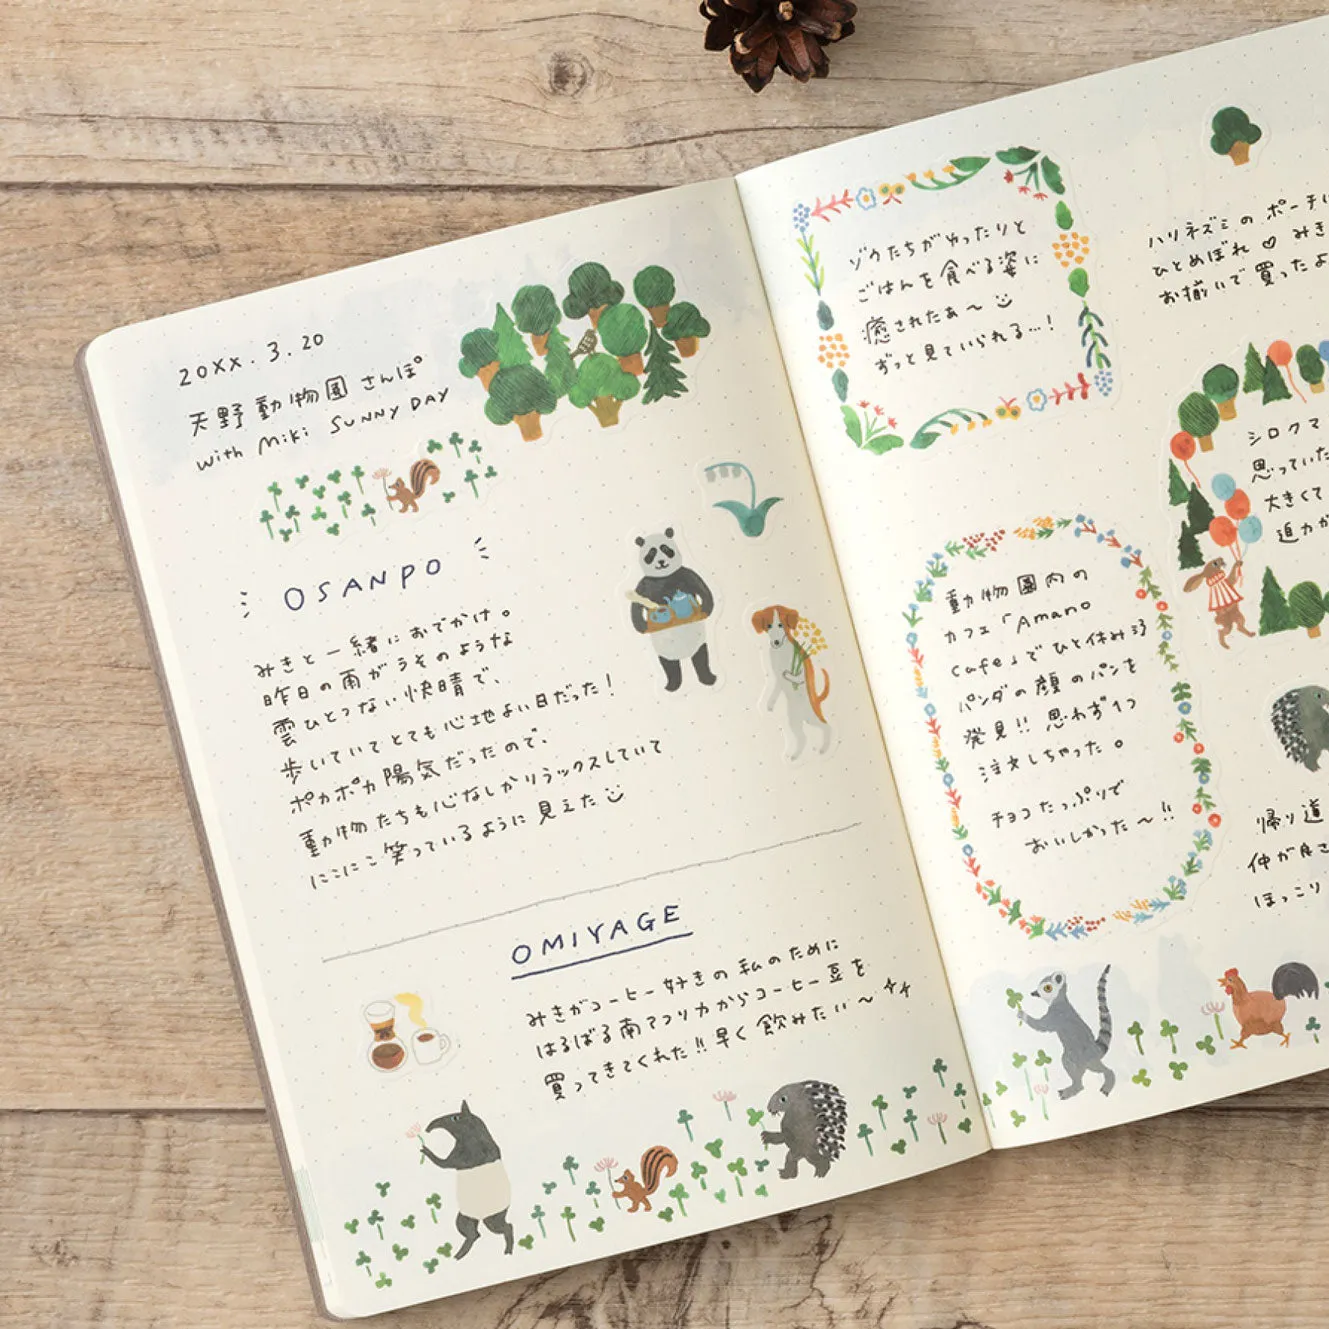 20XX.3.20
天野動物園さんぽ
with Miki SUNNY DAY
OSANPO
みきと一緒におでかけ。
昨日の雨がうそのような
雲ひとつない快晴で、
歩いていてとても心地よい日だった!
ポカポカ陽気だったので、
動物たちも心なしかリラックスしていて
にこにこ笑っているように見えた
OMIYAGE
みきがコーヒー好きの私のために
はるばる南アフリカからコーヒー豆を
買ってきてくれた!!早く飲みたい〜
ゾウたちがゆったりと
ごはんを食べる姿に
癒されたぁ〜
ずっと見ていられる…!
動物園内の
カフェ「Amano
Cafe」でひと休み
パンダの顔のパンを
発見!!思わず1つ
注文しちゃった。
チョコたっぷりで
おいしかった〜!!
ハリネズミのポーチに
ひとめぼれ♡みき
お揃いで買ったよ
シロクマ
思っていた
大きくて
迫力が
帰り道
仲が良さ
ほっこり